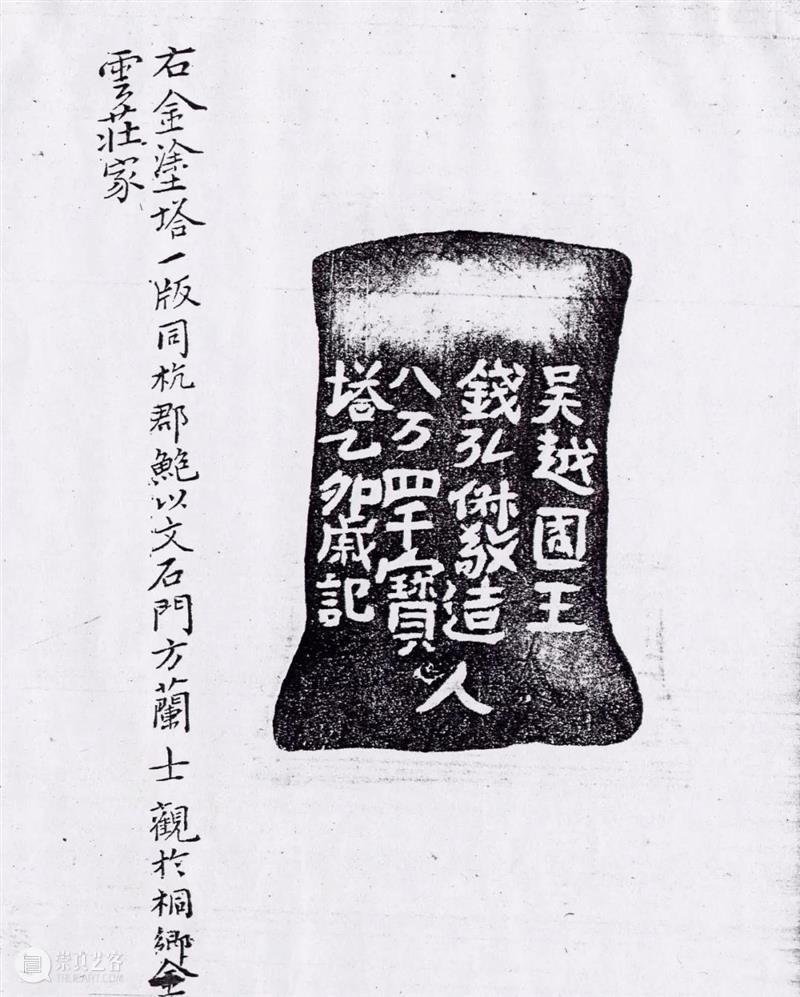 吳越國王
錢弘俶敬造
八万四千寶
塔乙卯歲記
人
右金塗塔一版同杭郡鮑以文石門方蘭士觀於桐鄉金
雲莊家
崇真艺客